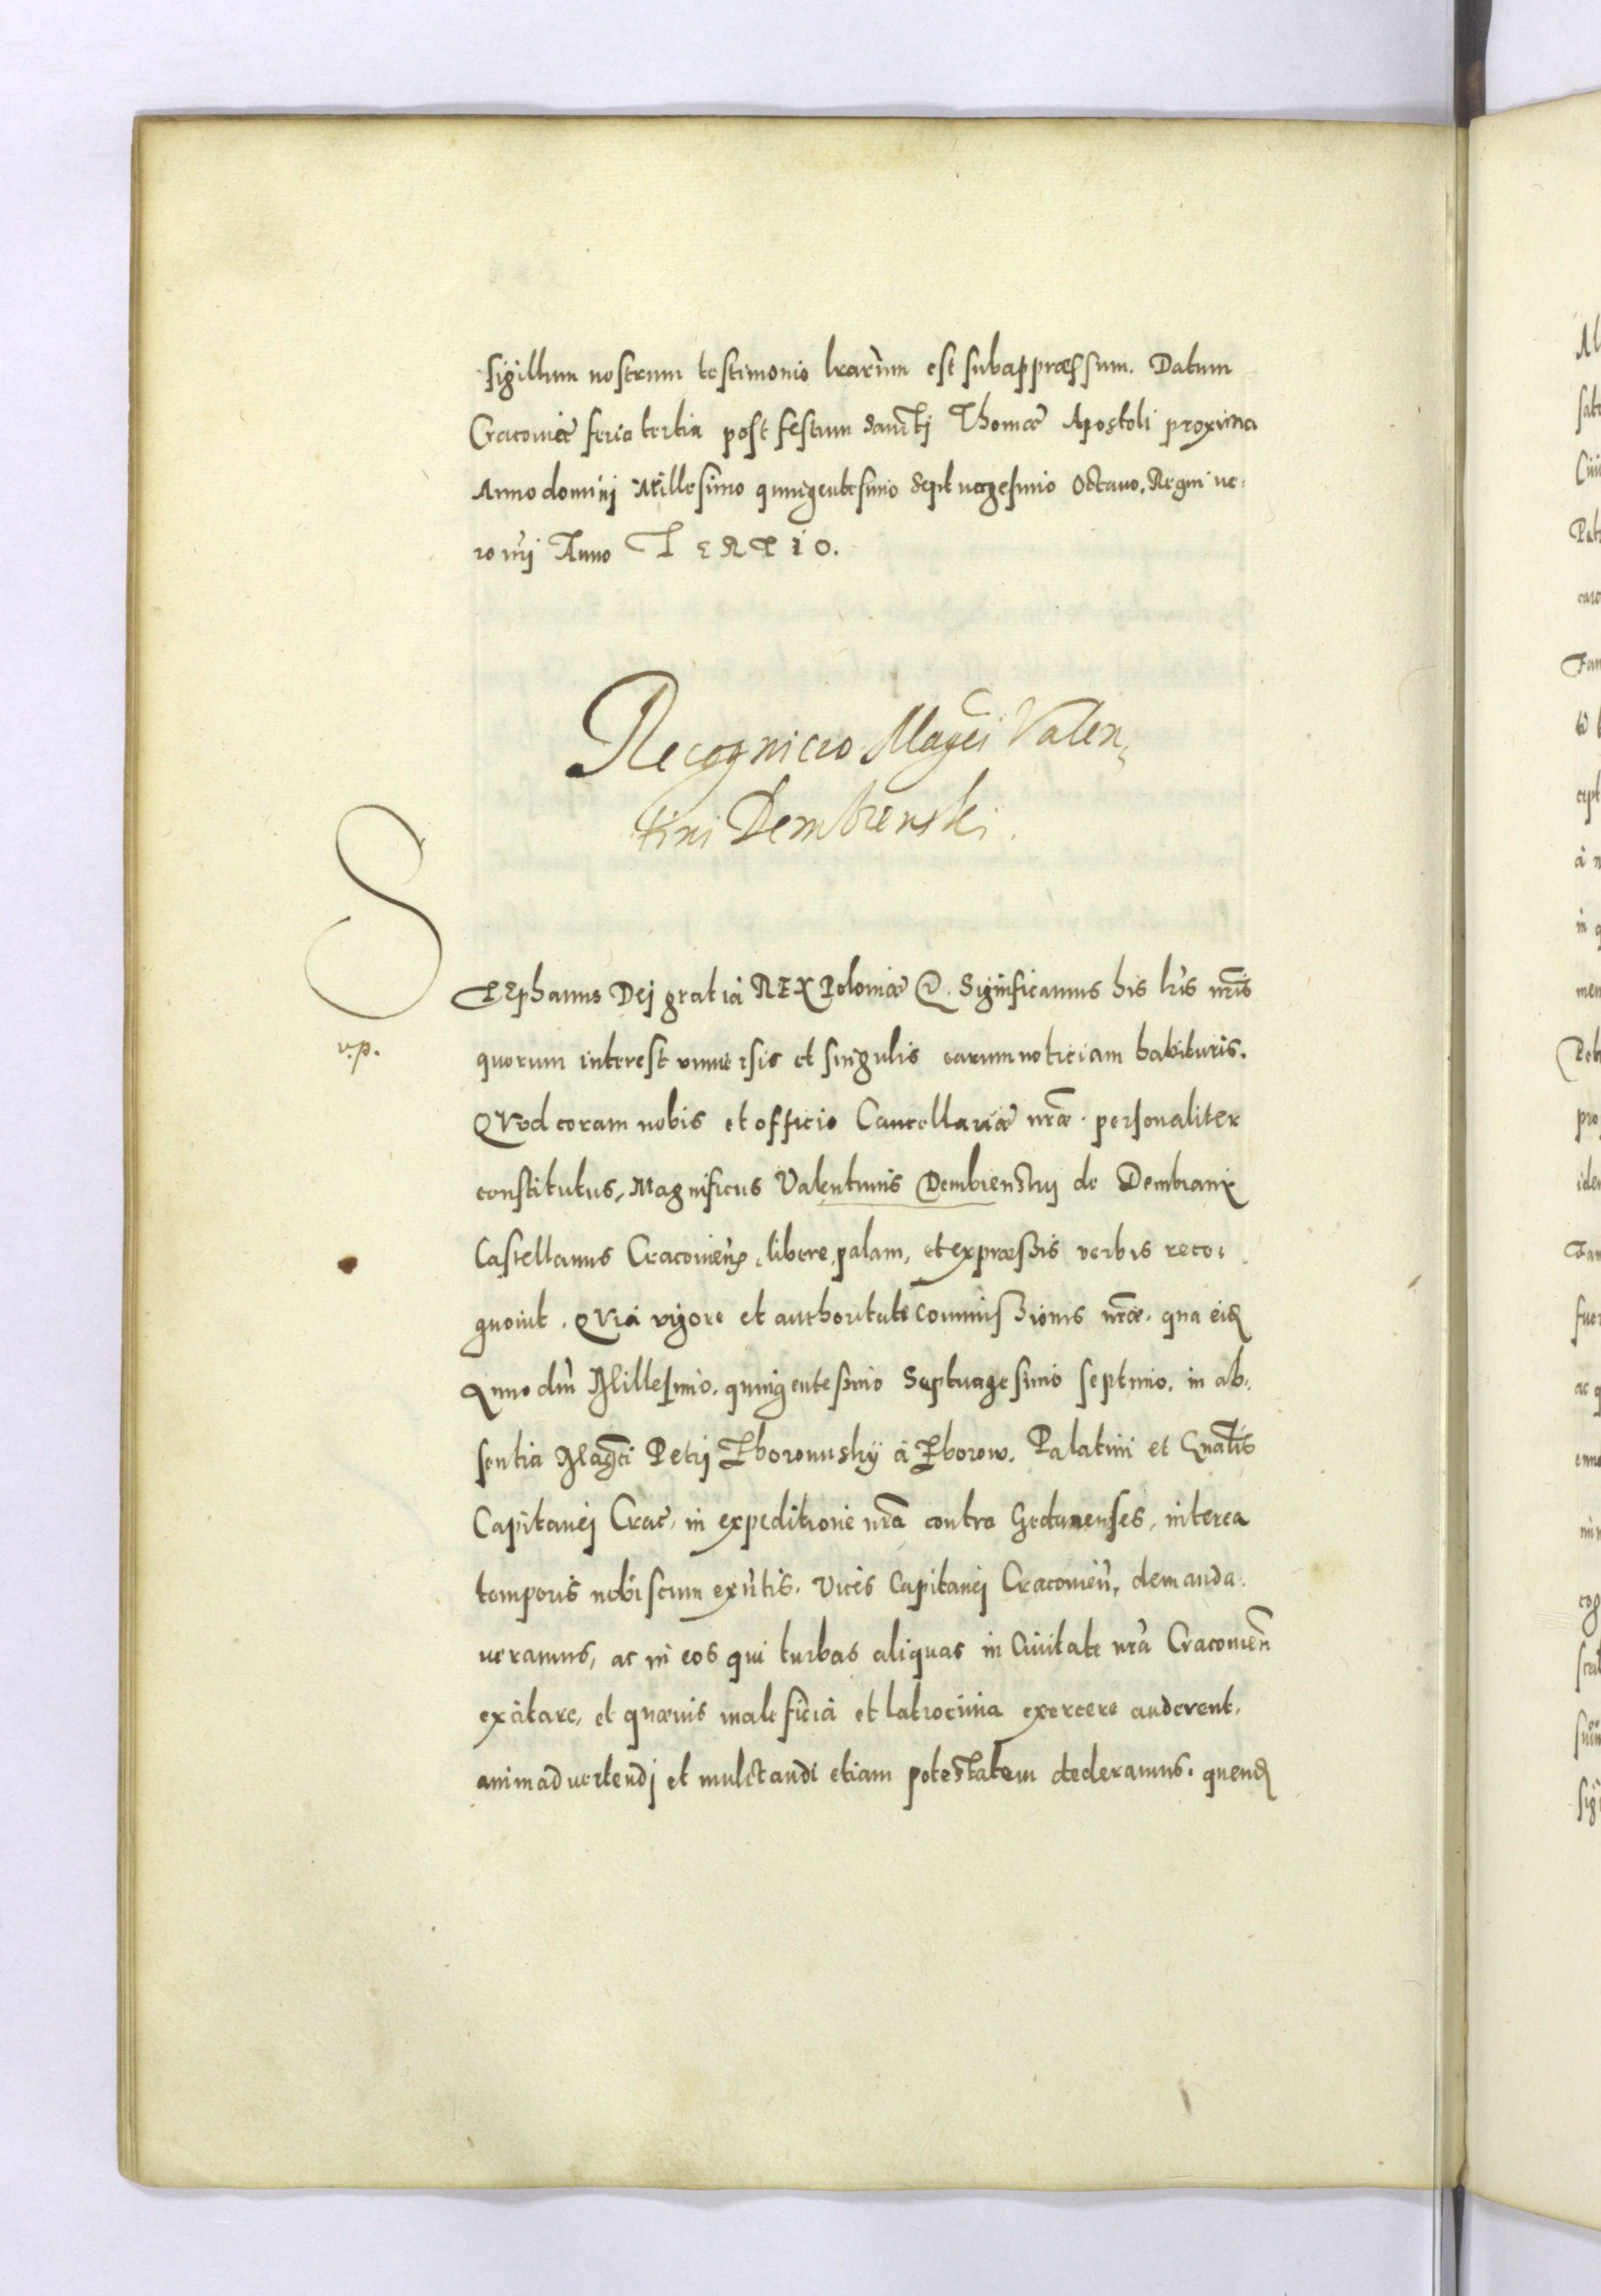 Sigillum nostrum testimonio lrarum est subappræssum. Datum
Cracoviæ feria tertia post festum Sancti Thomæ Apostoli proxima
Anno dominj Millesimo quingentesimo septuagesimo Octauo. Regni ve-
ro nri Anno TERTIO.
Recognicio Magci Valen-
tini Dembienski.
STEphanus Dej gratia REX Poloniæ &. Significamus his lris nris
v.p.
quorum interest vniuersis et singulis earum noticiam habituris.
QVod coram nobis et officio Cancellariæ nræ personaliter
constitutus, Magnificus Valentinus Dembienskij de Dembianÿ
Castellanus Cracovien, libere, palam, et expræssis verbis reco-
gnouit. QVia vigore et authoritate commissionis nræ, qua eid
Anno dni Millesimo, quingentesimo Septuagesimo septimo, in ab-
sentia Magci Petrj Zborowskÿ à Zborow. Palatini et Gnalis
Capitanej Crac, in expeditione nra contra Gedanenses, interea
temporis nobiscum exntis. Vices Capitanej Cracovien, demanda-
ueramus, ac in eos qui turbas aliquas in Ciuitate nra Cracovien
excitare, et quæuis maleficia et latrocinia exercere auderent,
animaduertendj et mulctandi etiam potestatem dederamus. quend